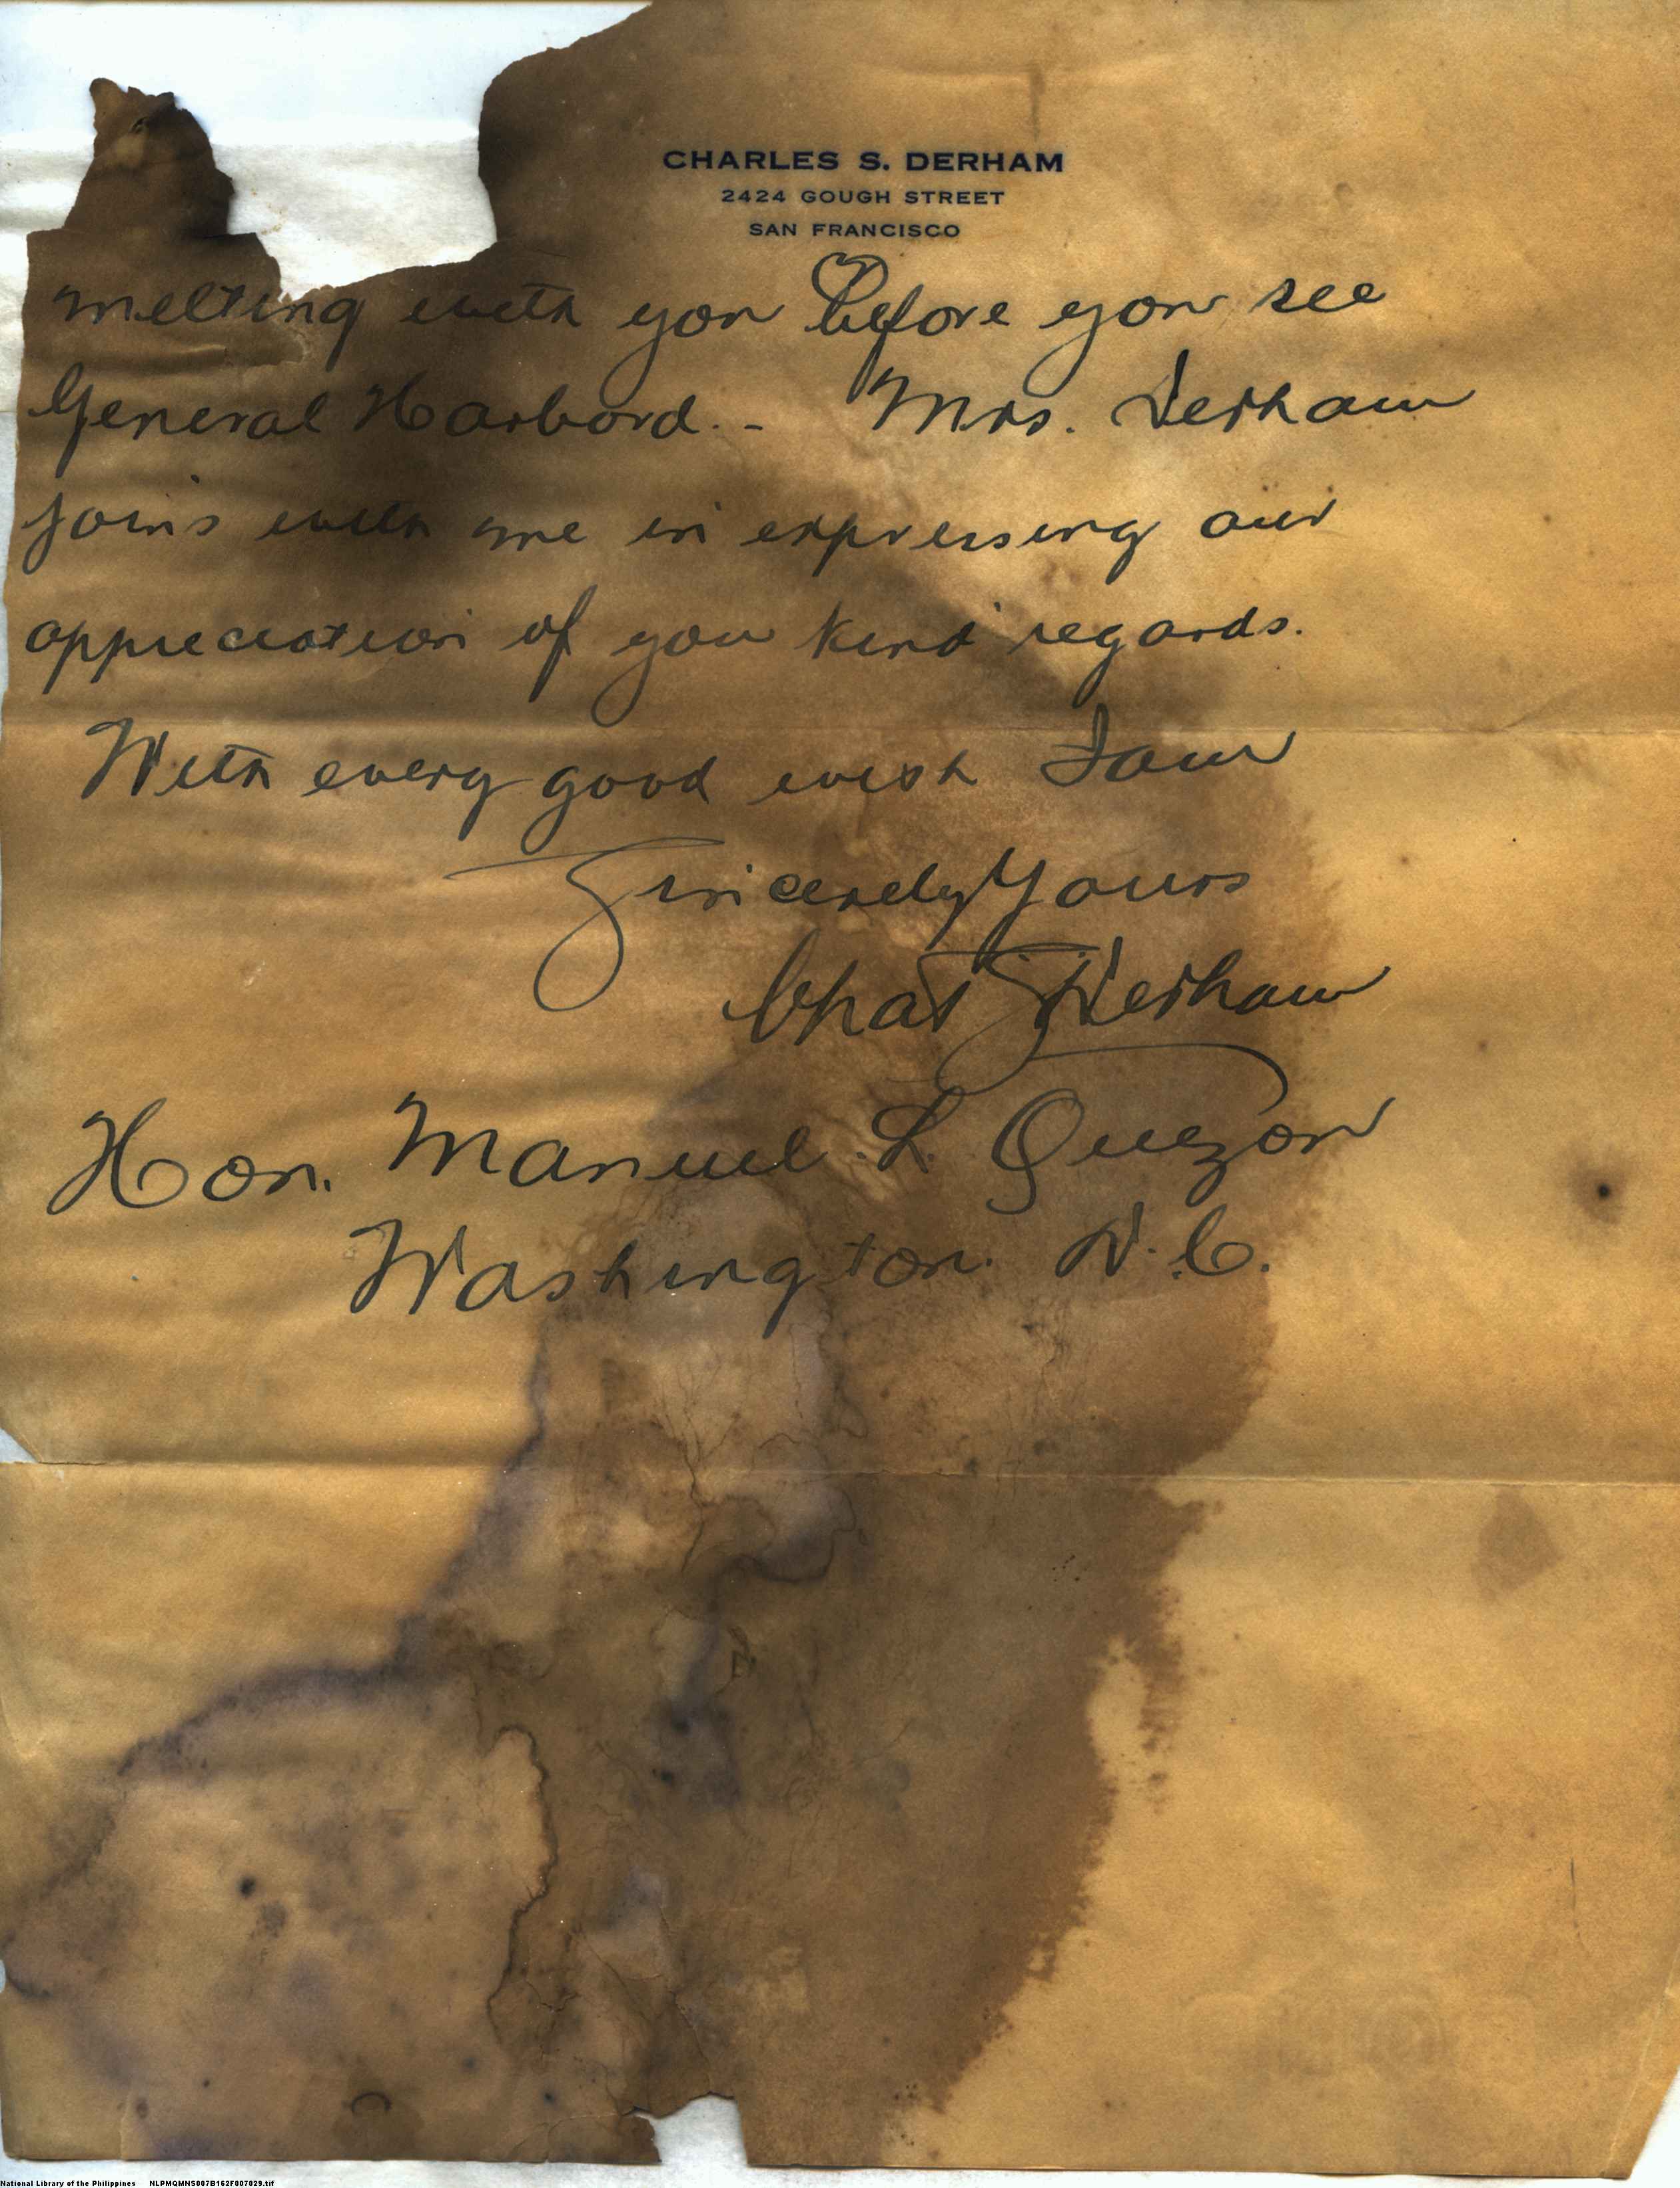 CHARLES S. DERHAM
2424 GOUGH STREET
SAN FRANCISCO
meeting with you before you see
General Harbord. - Mrs. Derham
joins with me in expressing our
appreciation of your kind regards.
With every good wish I am
Sincerely Yours
Chas S Derham
Hon. Manuel L. Quezon
Washington. D.C.
National Library of the Philippines NLPMQMNS007B162F007029.tif